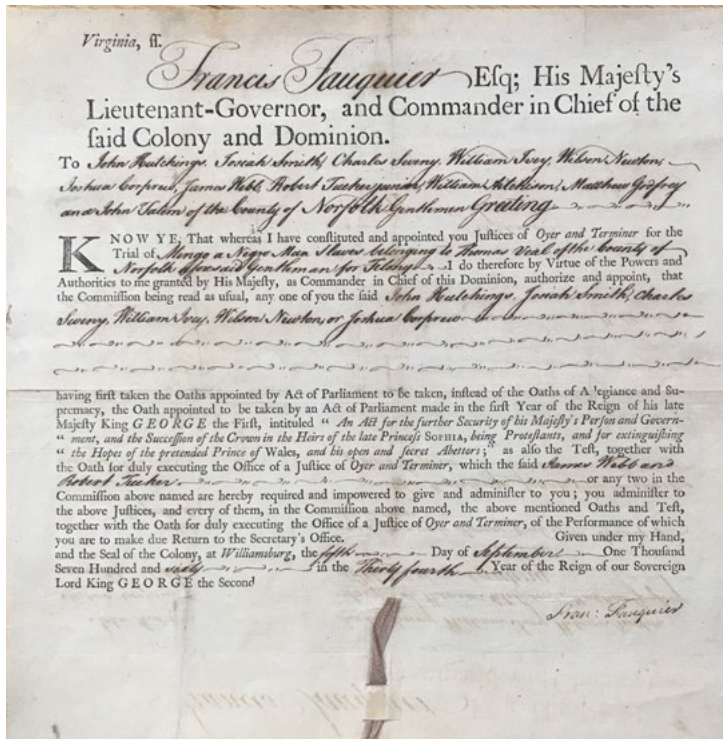 Virginia, ſſ.
Francis Fauquier Eſq; His Majeſty's
Lieutenant-Governor, and Commander in Chief of the
ſaid Colony and Dominion.
To John Hutchings, Josiah Smith, Charles Sweny, William Ivey, Wilson Newton,
Joshua Corprew, James Webb, Robert Tucker junior, William Aitchison, Matthew Godfrey
and John Talem of the County of Norfolk Gentlemen Greeting
KNOW YE, That whereas I have conſtituted and appointed you Juſtices of Oyer and Terminer for the
Trial of Mingo a Negro Man Slave belonging to Thomas Veal of the County of
Norfolk aforesaid Gentleman for Felony I do therefore by Virtue of the Powers and
Authorities to me granted by His Majeſty, as Commander in Chief of this Dominion, authorize and appoint, that
the Commiſſion being read as uſual, any one of you the ſaid John Hutchings, Josiah Smith, Charles
Sweny, William Ivey, Wilson Newton, or Joshua Corprew
having firſt taken the Oaths appointed by Act of Parliament to be taken, inſtead of the Oaths of A'egiance and Su-
premacy, the Oath appointed to be taken by an Act of Parliament made in the firſt Year of the Reign of his late
Majeſty King GEORGE the Firſt, intituled " An Act for the further Security of his Majeſty's Perſon and Govern-
" ment, and the Succeſſion of the Crown in the Heirs of the late Princeſs SOPHIA, being Proteſtants, and for extinguiſhing
" the Hopes of the pretended Prince of Wales, and his open and ſecret Abettors;" as alſo the Teſt, together with
the Oath for duly executing the Office of a Juſtice of Oyer and Terminer, which the ſaid James Webb and
Robert Tucker or any two in the
Commiſſion above named are hereby required and impowered to give and adminiſter to you; you adminiſter to
the above Juſtices, and every of them, in the Commiſſion above named, the above mentioned Oaths and Teſt,
together with the Oath for duly executing the Office of a Juſtice of Oyer and Terminer, of the Performance of which
you are to make due Return to the Secretary's Office. Given under my Hand,
and the Seal of the Colony, at Williamsburg, the fifth Day of September One Thouſand
Seven Hundred and sixty in the Thirty fourth Year of the Reign of our Sovereign
Lord King GEORGE the Second
Fran: Fauquier